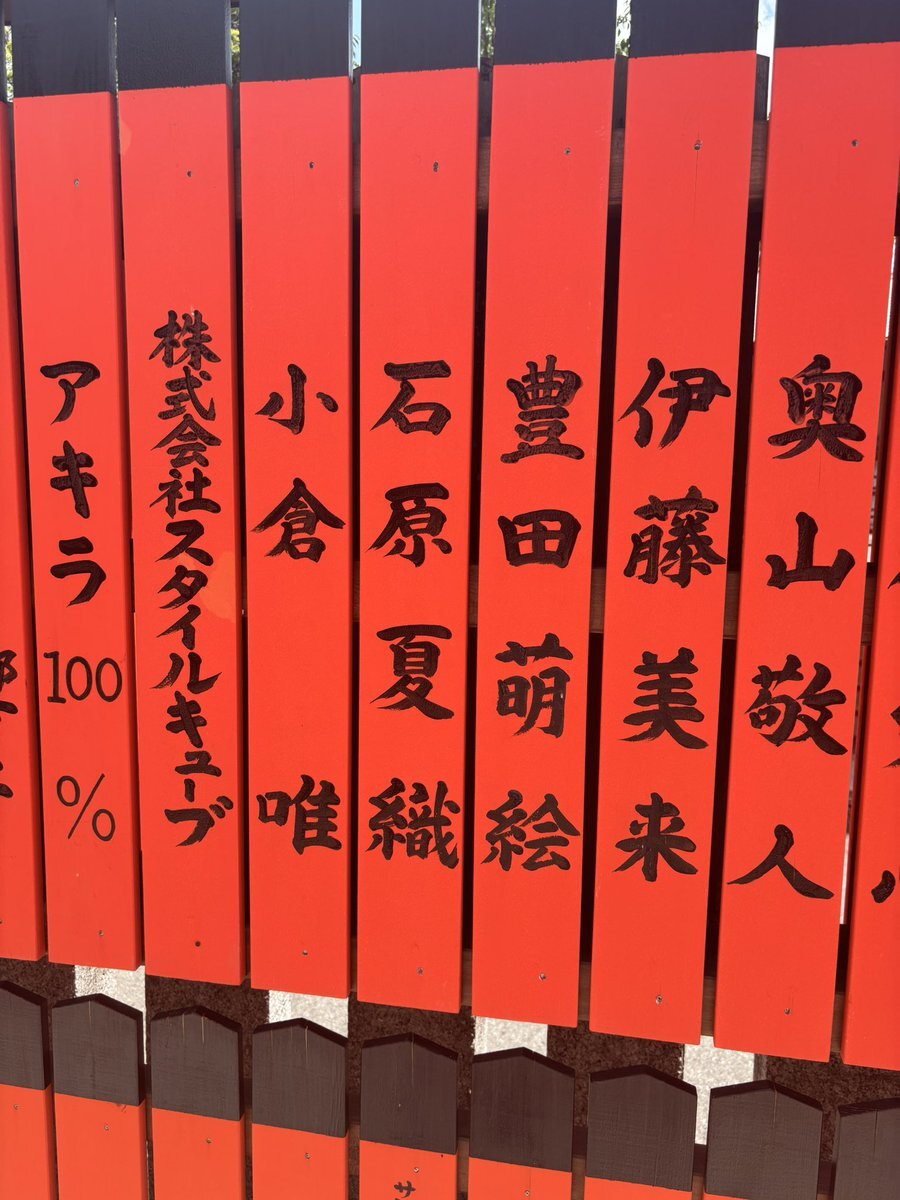 奥山敬人
伊藤美来
豊田萌絵
石原夏織
小倉唯
株式会社スタイルキューブ
アキラ100%